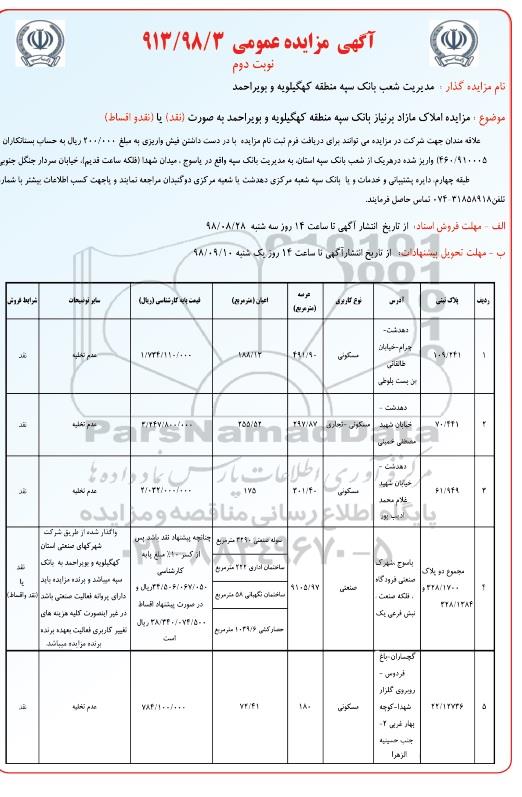 آگهی مزایده عمومی ۹۱۳/۹۸/۳
نوبت دوم
نام مزایده گذار : مدیریت شعب بانک سپه منطقه کهگیلویه و بویراحمد
موضوع : مزایده املاک مازاد برنیاز بانک سپه منطقه کهگیلویه و بویراحمد به صورت (نقد) یا (نقدو اقساط)
علاقه مندان جهت شرکت در مزایده می توانند برای دریافت فرم ثبت نام مزایده با در دست داشتن فیش واریزی به مبلغ ۲۰۰/۰۰۰ ریال به حساب بستانکاران
(۴۶۰/۹۱۰۰۰۵ واریز شده درهریک از شعب بانک سپه استان، به مدیریت بانک سپه واقع در یاسوج ، میدان شهدا (فلکه ساعت قدیم)، خیابان سردار جنگل جنوبی
طبقه چهارم، دایره پشتیبانی و خدمات و یا بانک سپه شعبه مرکزی دهدشت یا شعبه مرکزی دوگنبدان مراجعه نمایند و یاجهت کسب اطلاعات بیشتر با شماره
تلفن۳۱۸۵۸۹۱۸-۰۷۴ تماس حاصل فرمایند.
الف - مهلت فروش اسناد: از تاریخ انتشار آگهی تا ساعت ۱۴ روز سه شنبه ۹۸/۰۸/۲۸
ب - مهلت تحویل پیشنهادات: از تاریخ انتشارآگهی تا ساعت ۱۴ روز یک شنبه ۹۸/۰۹/۱۰
ردیف پلاک ثبتی آدرس نوع کاربری عرصه (مترمربع) اعیان (مترمربع) قیمت پایه کارشناسی (ریال) سایر توضیحات شرایط فروش
۱ ۱۰۹/۲۴۱ دهدشت- چرام-خیابان طالقانی بن بست بلوطی مسکونی ۴۹۱/۹۰ ۱۸۸/۱۲ ۱/۷۳۴/۱۱۰/۰۰۰ عدم تخلیه نقد
۲ ۷۰/۴۴۱ دهدشت - خیابان شهید مصطفی خمینی مسکونی -تجاری ۲۹۷/۸۷ ۲۵۵/۵۲ ۳/۲۴۷/۸۰۰/۰۰۰ عدم تخلیه نقد
۳ ۶۱/۹۴۹ دهدشت - خیابان شهید غلام محمد ادیب پور مسکونی ۳۰۱/۴۰ ۱۷۵ ۲/۰۳۲/۰۰۰/۰۰۰ عدم تخلیه نقد
۴ مجموع دو پلاک ۳۲۸/۱۷۰۰ و ۳۲۸/۱۳۸۴ یاسوج ،شهرک صنعتی فرودگاه ، فلکه صنعت ، نبش فرعی یک صنعتی ۹۱۰۵/۹۷
سوله صنعتی ۳۲۹۰ مترمربع
ساختمان اداری ۲۲۲ مترمربع
ساختمان نگهبانی ۵۸ مترمربع
حصارکشی ۱۰۳۹/۶ مترمربع
چنانچه پیشنهاد نقد باشد پس از کسر ۱۰٪ مبلغ پایه کارشناسی ۳۴/۵۰۶/۰۶۷/۰۵۰ریال و در صورت پیشنهاد اقساط ۳۸/۳۴۰/۰۷۴/۵۰۰ ریال است
واگذار شده از طریق شرکت شهرکهای صنعتی استان کهگیلویه و بویراحمد به بانک سپه میباشد و برنده مزایده باید دارای پروانه فعالیت صنعتی باشد در غیر اینصورت کلیه هزینه های تغییر کاربری فعالیت بعهده برنده برنده مزایده میباشد.
نقد یا (نقد واقساط)
۵ ۲۲/۱۲۷۳۶ گچساران-باغ فردوس - روبروی گلزار شهدا-کوچه بهار غربی ۲- جنب حسینیه الزهرا مسکونی ۱۸۰ ۷۲/۴۱ ۷۸۴/۱۰۰/۰۰۰ عدم تخلیه نقد
ParsNamadData
مرکز فرآوری اطلاعات پارس نماد داده ها
پایگاه اطلاع رسانی مناقصه و مزایده
۰۲۱-۸۸۳۴۹۶۷۰-۵